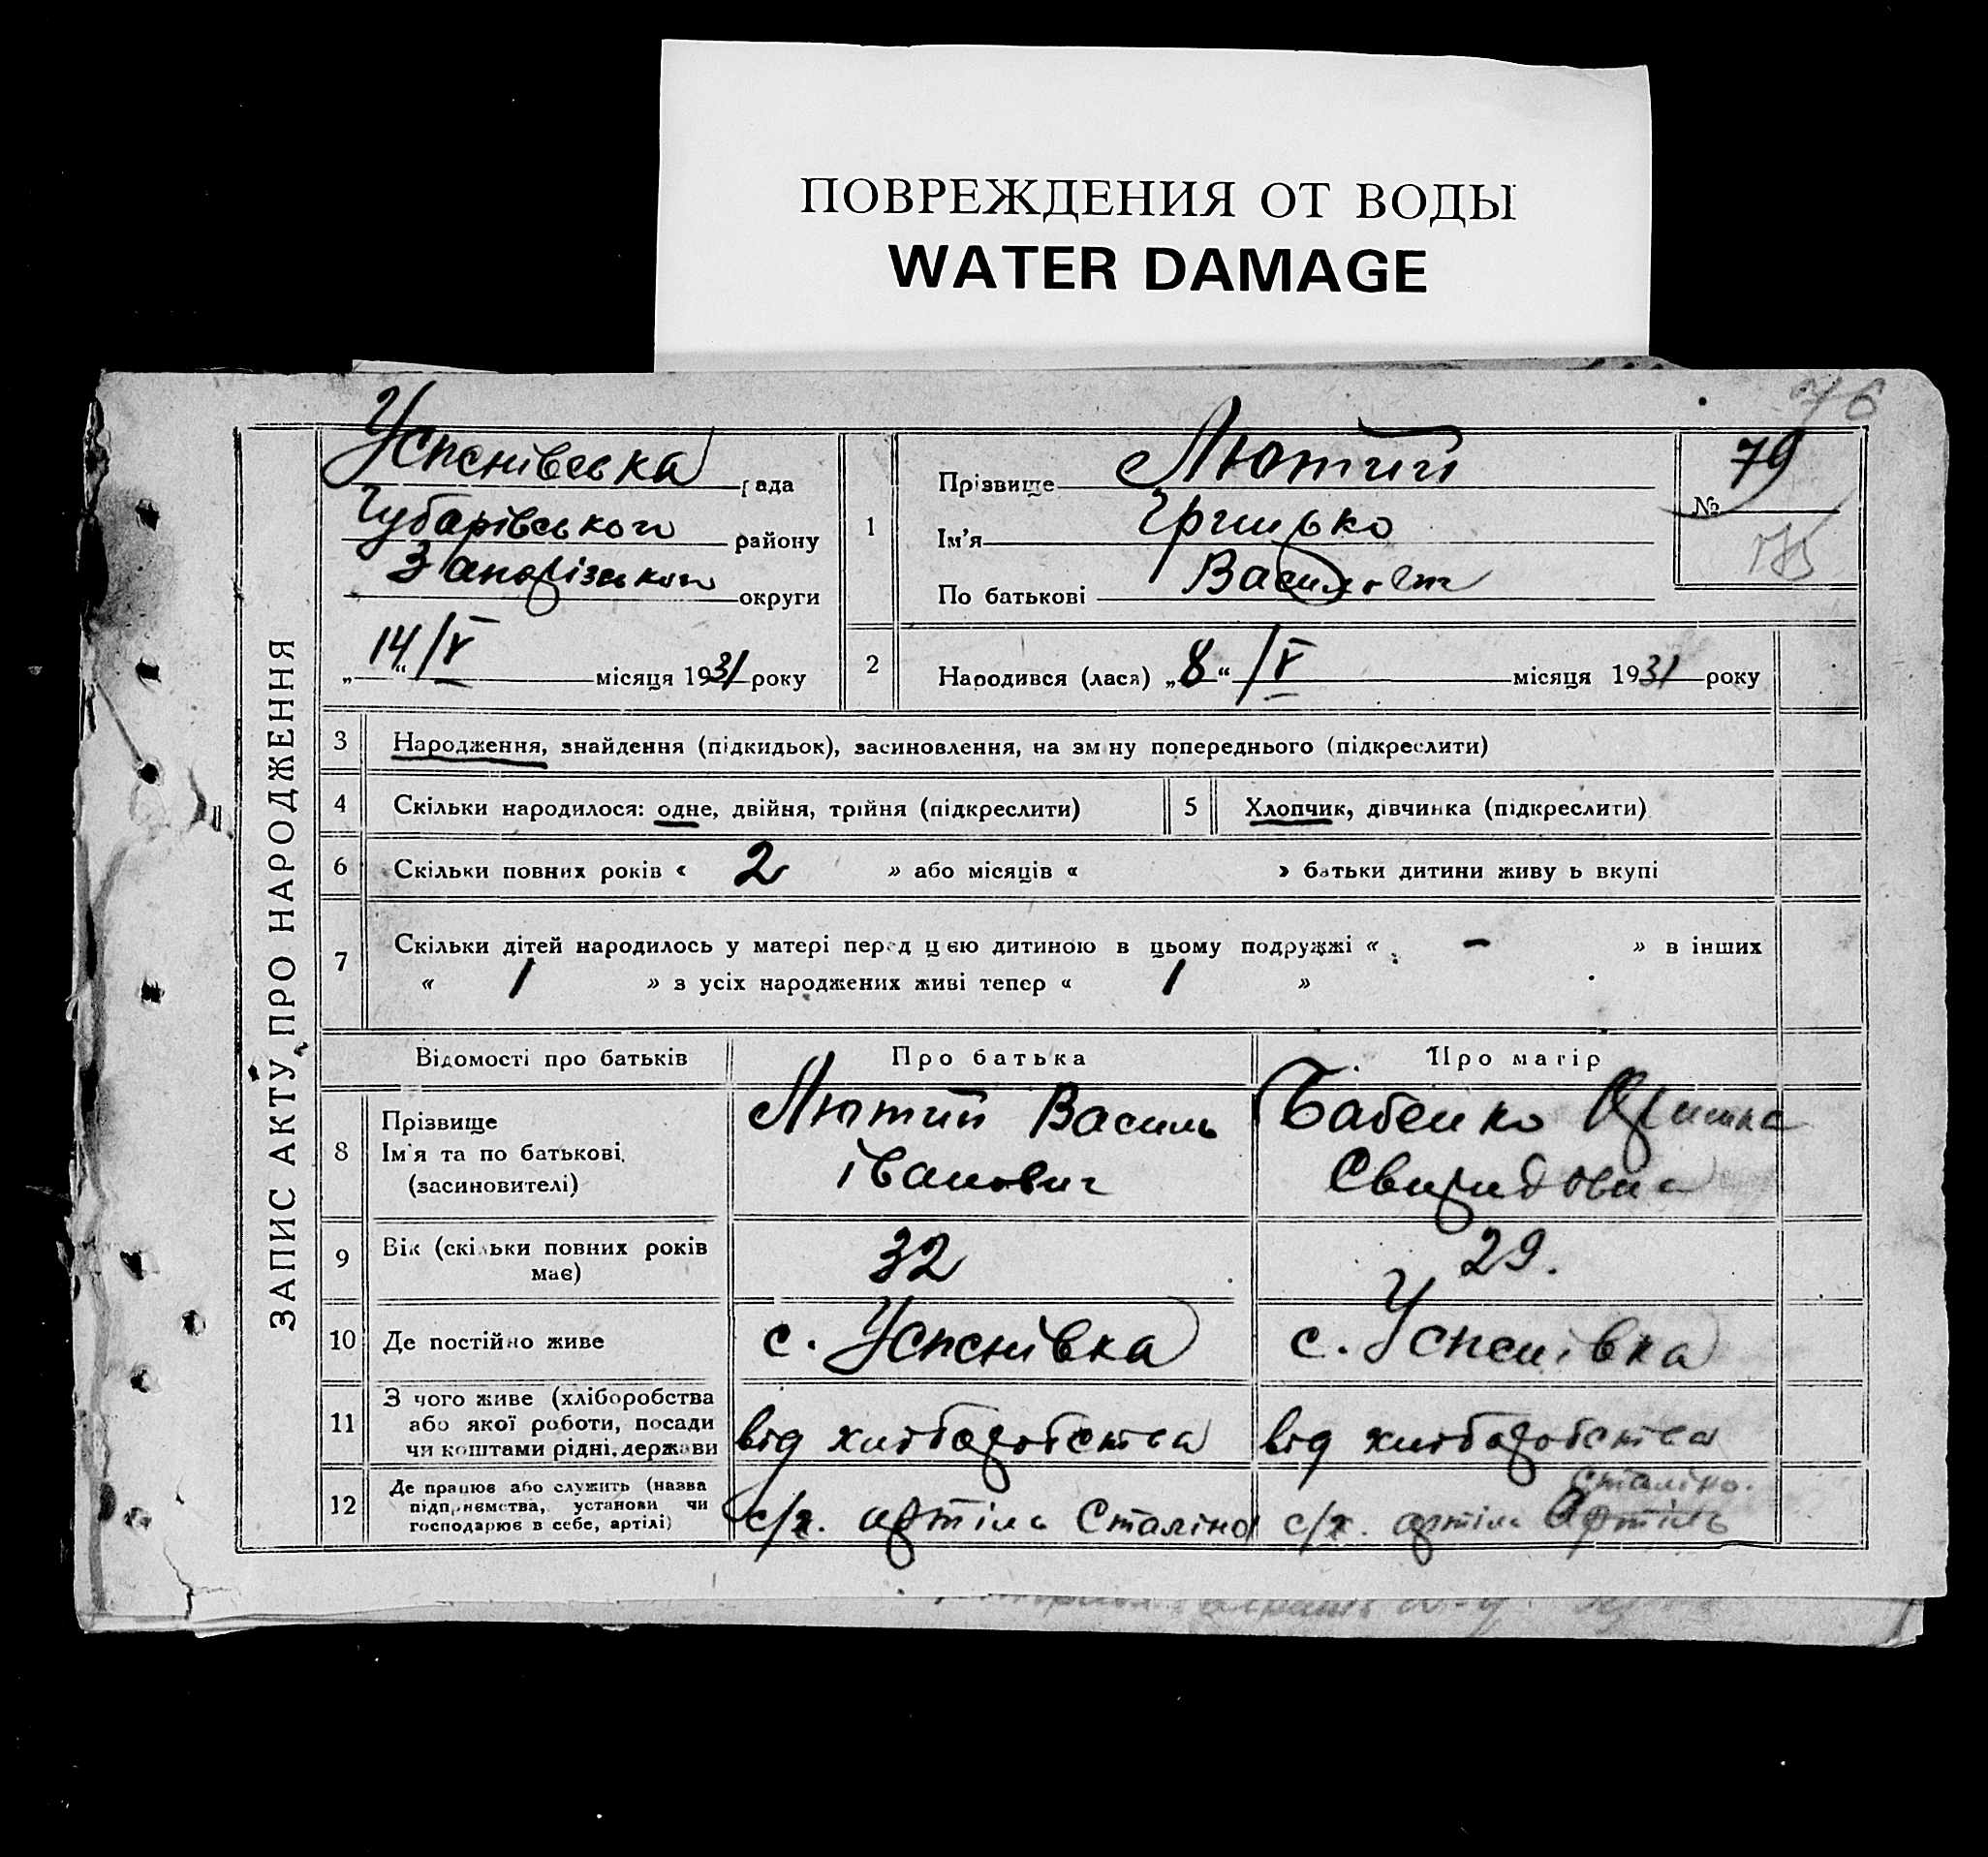 ПОВРЕЖДЕНИЯ ОТ ВОДЫ
WATER DAMAGE
76
ЗАПИС АКТУ ПРО НАРОДЖЕННЯ
Успенівська рада
Губарівського району
Запорізького округи
„14“/V місяця 1931 року
1
Прізвище Лютий
Ім'я Грицько
По батькові Васильович
№ 79
2
Народився (лася) „8“ /V місяця 1931 року
3 Народження, знайдення (підкидьок), засиновлення, на зміну попереднього (підкреслити)
4 Скільки народилося: одне, двійня, трійня (підкреслити) 5 Хлопчик, дівчинка (підкреслити)
6 Скільки повних років « 2 » або місяців « » батьки дитини живуть вкупі
7 Скільки дітей народилось у матері перед цією дитиною в цьому подружжі « - » в інших
« 1 » з усіх народжених живі тепер « 1 »
Відомості про батьків Про батька Про матір
8 Прізвище
Ім'я та по батькові
(засновителі)
Лютий Василь
Іванович
Бабенко
Свиридовна
9 Вік (скільки повних років
має)
32
29.
10 Де постійно живе с. Успенівка с. Успенівка
11 З чого живе (хліборобства
або якої роботи, посади
чи коштами рідні, держави
від хліборобства
від хліборобства
12 Де працює або служить (назва
підприємства, установи чи
господарює в себе, артілі)
с/г. артіль Сталіно
Сталіно.
с/г. артіль Артіль